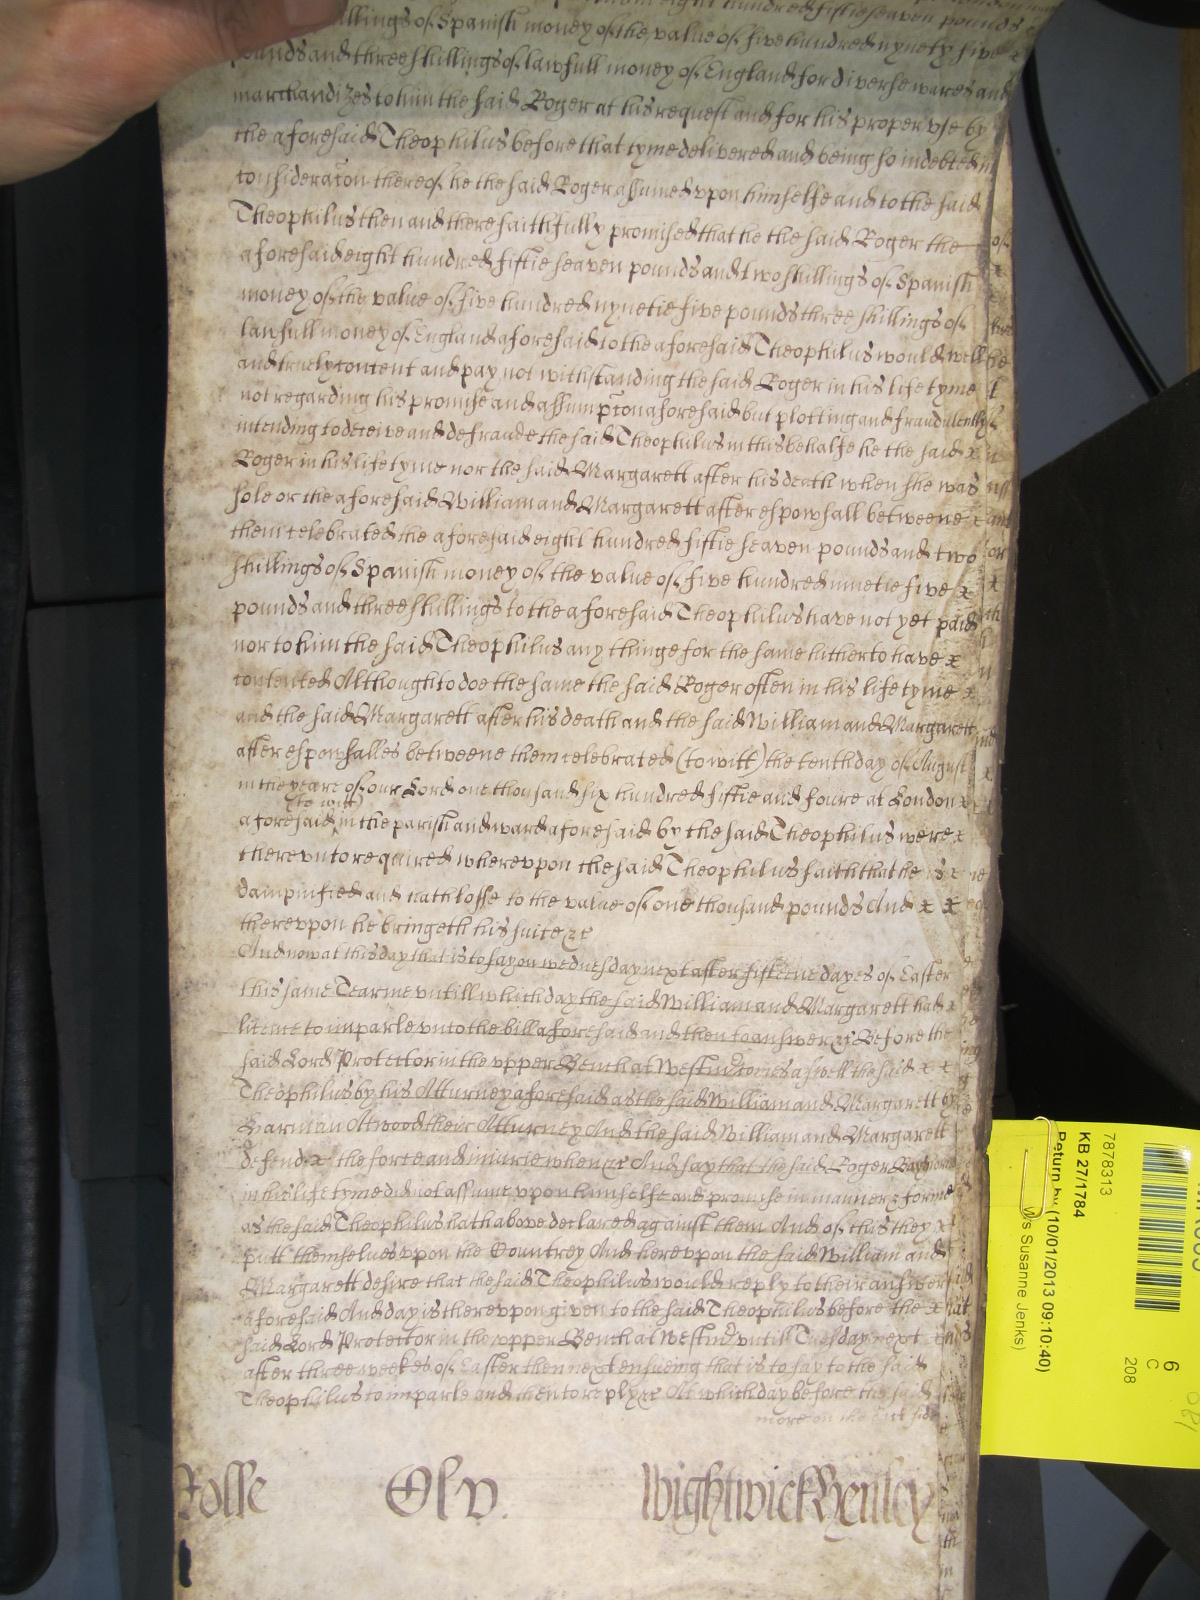 eight hundred fiftie seaven pounds
shillings of Spanish money of the value of five hundred nynety five x
pounds and three shillings of lawfull money of England for diverse wares and
marchandizes to him the said Roger at his request and for his proper vse by
the aforesaid Theophilus before that tyme delivered and being so indebted in
consideracon thereof he the said Roger assumed vpon himselfe and to the said
Theophilus then and there faithfully promised that he the said Roger the
aforesaid eight hundred fiftie seaven pounds and two shillings of Spanish
money of the value of five hundred nynetie five pounds three shillings of
lawfull money of England aforesaid to the aforesaid Theophilus would well
and truely content and pay not withstanding the said Roger in his life tyme
not regarding his promise and assumpcon aforesaid but plotting and fraudulently
intending to deceive and defraude the said Theophilus in this behalfe he the said x
Roger in his life tyme nor the said Margarett after his death when she was
sole or the aforesaid William and Margarett after espowsall betweene x
them celebrated the aforesaid eight hundred fiftie seaven pounds and two
shillings of Spanish money of the value of five hundred ninetie five x
pounds and three shillings to the aforesaid Theophilus have not yet paid
nor to him the said Theophilus any thinge for the same hitherto have x
contented Although to doe the same the said Roger often in his life tyme x
and the said Margarett after his death and the said William and Margarett
after espowsalles betweene them celebrated (to witt) the tenth day of August
in the yeare of our Lord one thousand six hundred fiftie and foure at London x
(to witt)
aforesaid in the parish and ward aforesaid by the said Theophilus were x
therevnto required wherevpon the said Theophilus saith that he is x
dampnified and hath losse to the value of one thousand pounds And x x
therevpon he bringeth his suite &c
And now at this day that is to say on wednesday next after fifteene dayes of Easter
this same Tearme vntill which day the said William and Margarett had x
licence to imparle vnto the bill aforesaid and then to answer &c Before the
said Lord Protector in the vpper Bench at Westm comes aswell the said x x
Theophilus by his Atturney aforesaid as the said William and Margarett by
Harman Atwood their Atturney And the said William and Margarett
defend x the force and iniurie when &c And say that the said Roger
in his life tyme did not assume vpon himselfe and promise in manner & forme
as the said Theophilus hath above declared against them And of this they x
putt themselves vpon the Countrey And herevpon the said William and
Margarett desire that the said Theophilus would reply to their answer
aforesaid And day is therevpon given to the said Theophilus before the x
said Lord Protector in the vpper Bench at Westm vntill Tuesday next
after three weekes of Easter then next ensueing that is to say to the said
Theophilus to imparle and then to reply &c At which day before the said
more on the side
Rolle Olv. Wightwick Henley
7878313
KB 27/1784
Return by (10/01/2013 09:10:40)
s Susanne Jenks)
6
C
208